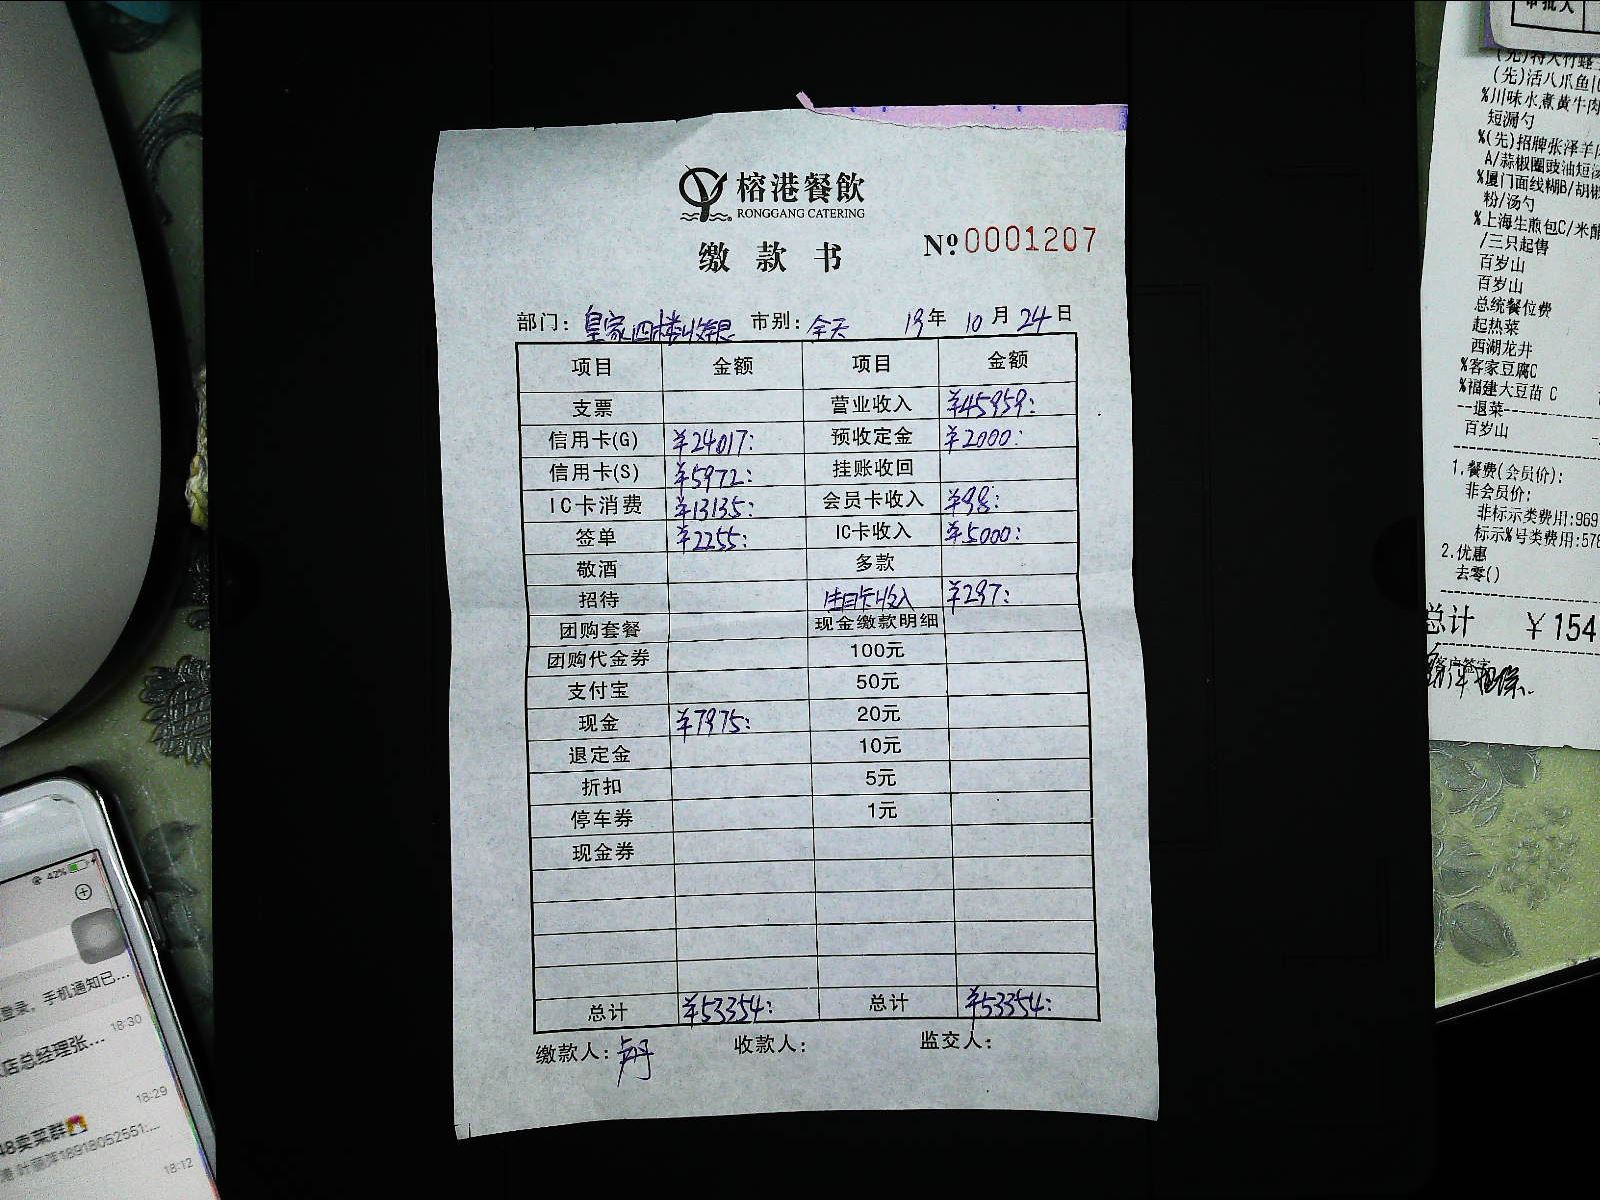 榕港餐飲
RONGGANG CATERING
缴款书 №0001207
部门：皇家四楼收银 市别：全天 19年10月24日
项目 金额 项目 金额
支票 营业收入 ¥45959:
信用卡(G) ¥24017: 预收定金 ¥2000:
信用卡(S) ¥5972: 挂账收回
IC卡消费 ¥13135: 会员卡收入 ¥98:
签单 ¥2255: IC卡收入 ¥5000:
敬酒 多款
招待 卡收入 ¥297:
团购套餐 现金缴款明细
团购代金券 100元
支付宝 50元
现金 ¥7975: 20元
退定金 10元
折扣 5元
停车券 1元
现金券
总计 ¥53354: 总计 ¥53354:
缴款人： 收款人： 监交人：
审批人
(先)特大竹蛏
(先)活八爪鱼
%川味水煮黄牛肉
短漏勺
%(先)招牌张泽羊
A/蒜椒圈豉油短
%厦门面线糊B/胡椒
粉/汤勺
%上海生煎包C/米醋
/三只起售
百岁山
百岁山
总统餐位费
起热菜
西湖龙井
%客家豆腐C
%福建大豆苗 C
--退菜--
百岁山
1.餐费(会员价):
非会员价:
非标示类费用:969
标示%号类费用:578
2.优惠
去零()
总计 ¥154
42%
登录，手机通知已...
18:30
店总经理张...
18:29
48卖菜群
18918052551:...
18:12